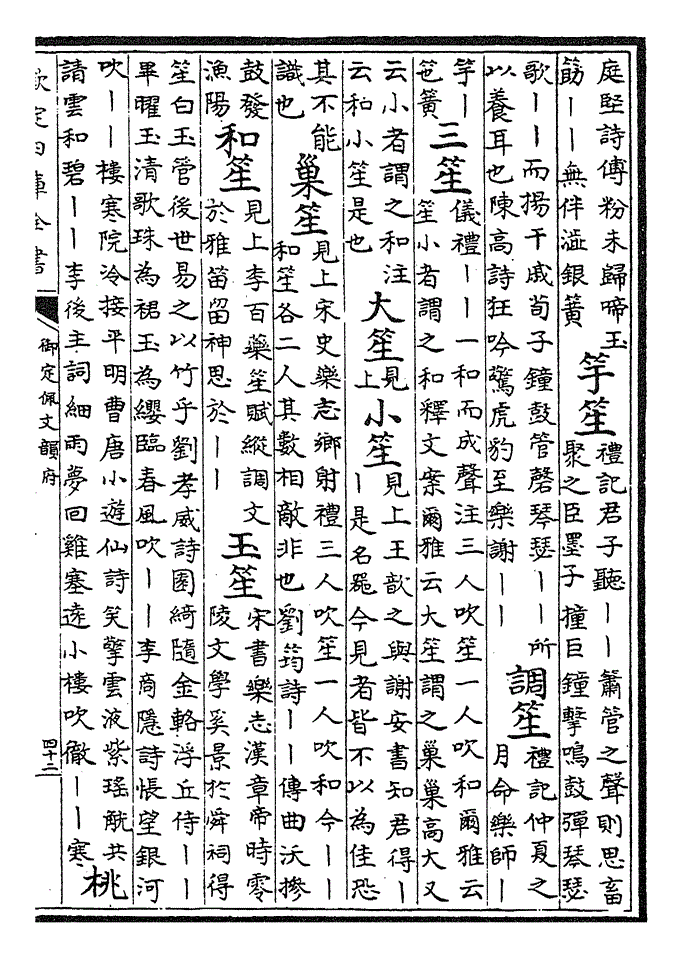 庭堅詩傅粉未歸啼玉
筯丨丨無伴溢銀簧
竽笙
禮記君子聽丨丨簫管之聲則思畜
聚之臣墨子撞巨鐘擊鳴鼓彈琴瑟
歌丨丨而揚干戚荀子鐘鼓管磬琴瑟丨丨所
以養耳也陳高詩狂吟驚虎豹至樂謝丨丨
調笙
禮記仲夏之
月命樂師丨
竽丨
笆簧
三笙
儀禮丨丨一和而成聲注三人吹笙一人吹和爾雅云
笙小者謂之和釋文案爾雅云大笙謂之巢巢高大又
云小者謂之和注
云和小笙是也
大笙
見
上
小笙
見上王歆之與謝安書知君得丨
丨是名器今見者皆不以為佳恐
其不能
識也
巢笙
見上宋史樂志鄉射禮三人吹笙一人吹和今丨丨
和笙各二人其數相敵非也劉筠詩丨丨傳曲沃摻
鼓發
漁陽
和笙
見上李百藥笙賦縱調文
於雅笛留神思於丨丨
玉笙
宋書樂志漢章帝時零
陵文學奚景於舜祠得
笙白玉管後世易之以竹乎劉孝威詩園綺隨金輅浮丘侍丨丨
畢曜玉清歌珠為裙玉為纓臨春風吹丨丨李商隱詩悵望銀河
吹丨丨樓寒院冷接平明曹唐小遊仙詩笑擎雲液紫瑤觥共
請雲和碧丨丨李後主詞細雨夢回雞塞遠小樓吹徹丨丨寒
桃
欽定四庫全書
御定佩文韻府
四十二